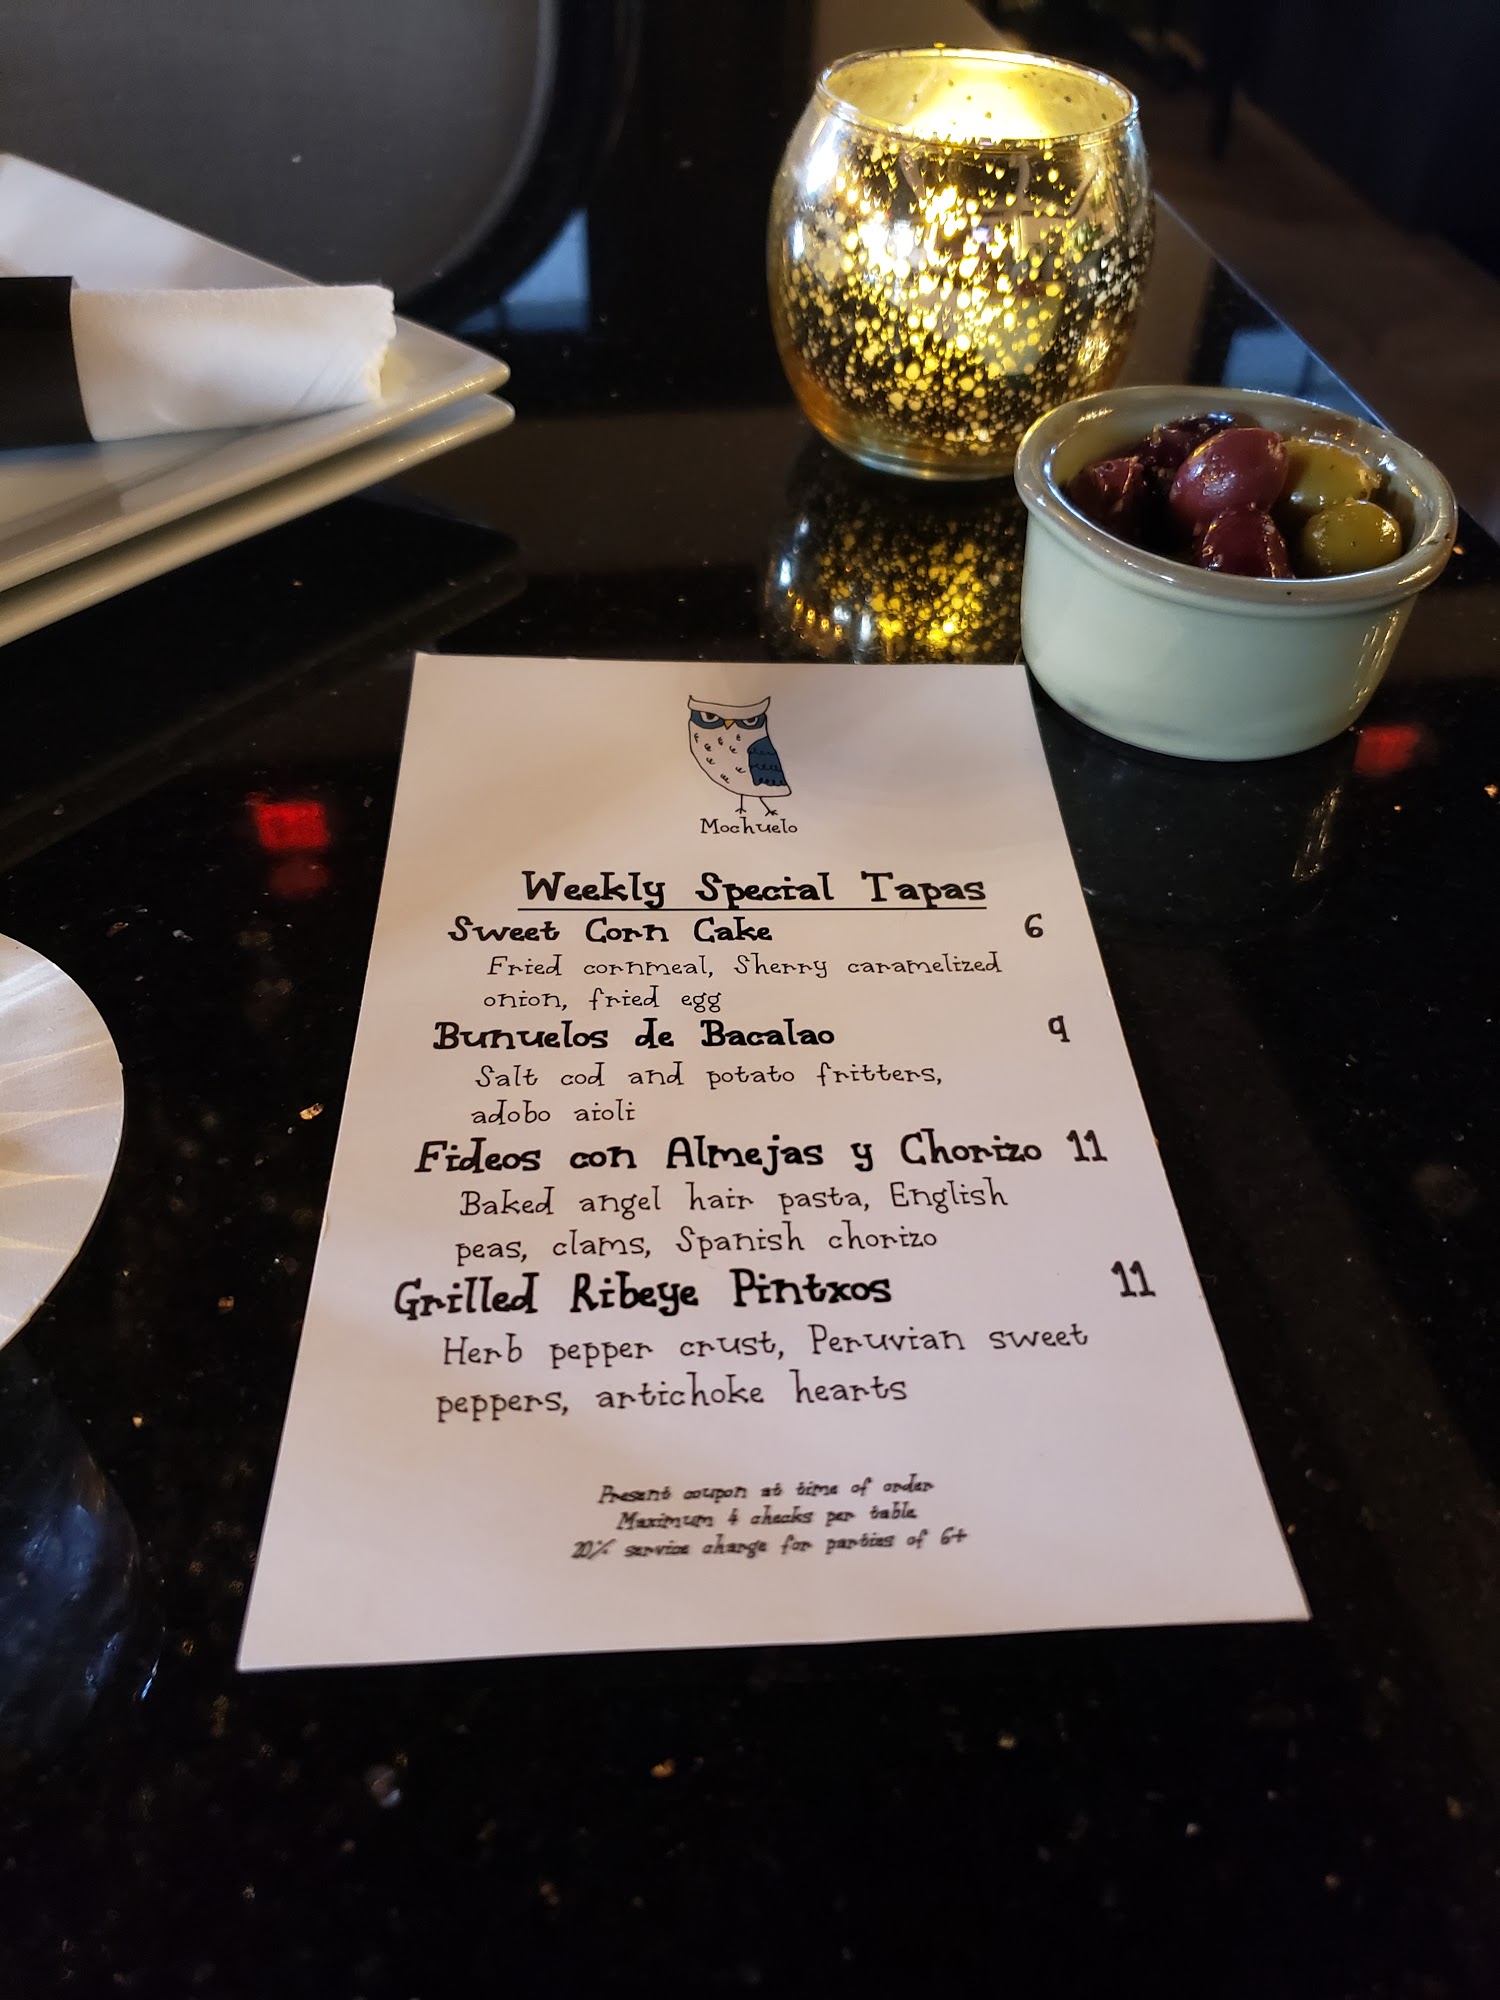 Mochuelo
Weekly Special Tapas
Sweet Corn Cake 6
Fried cornmeal, Sherry caramelized
onion, fried egg
Bunuelos de Bacalao 9
Salt cod and potato fritters,
adobo aioli
Fideos con Almejas y Chorizo 11
Baked angel hair pasta, English
peas, clams, Spanish chorizo
Grilled Ribeye Pintxos 11
Herb pepper crust, Peruvian sweet
peppers, artichoke hearts
Present coupon at time of order
Maximum 4 checks per table
20% service charge for parties of 6+